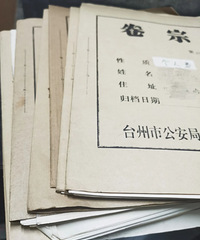 卷宗
性质 个人卷
姓名
住址
归档日期
台州市公安局